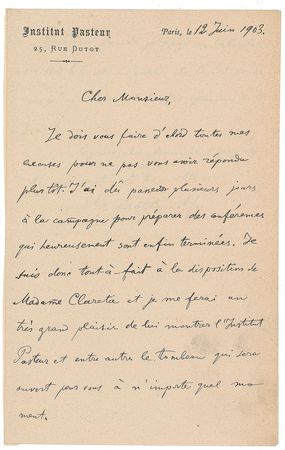 Institut Pasteur
25, Rue Dutot
Paris, le 12 Juin 1903.
Cher Monsieur,
Je dois vous faire d'abord toutes mes
excuses pour ne pas vous avoir répondu
plus tôt. J'ai dû passer plusieurs jours
à la campagne pour préparer des conférences
qui heureusement sont enfin terminées. Je
suis donc tout-à-fait à la disposition de
Madame Claretie et je me ferai un
très grand plaisir de lui montrer l'Institut
Pasteur et entre autres le tombeau qui sera
ouvert pour vous à n'importe quel mo
ment.